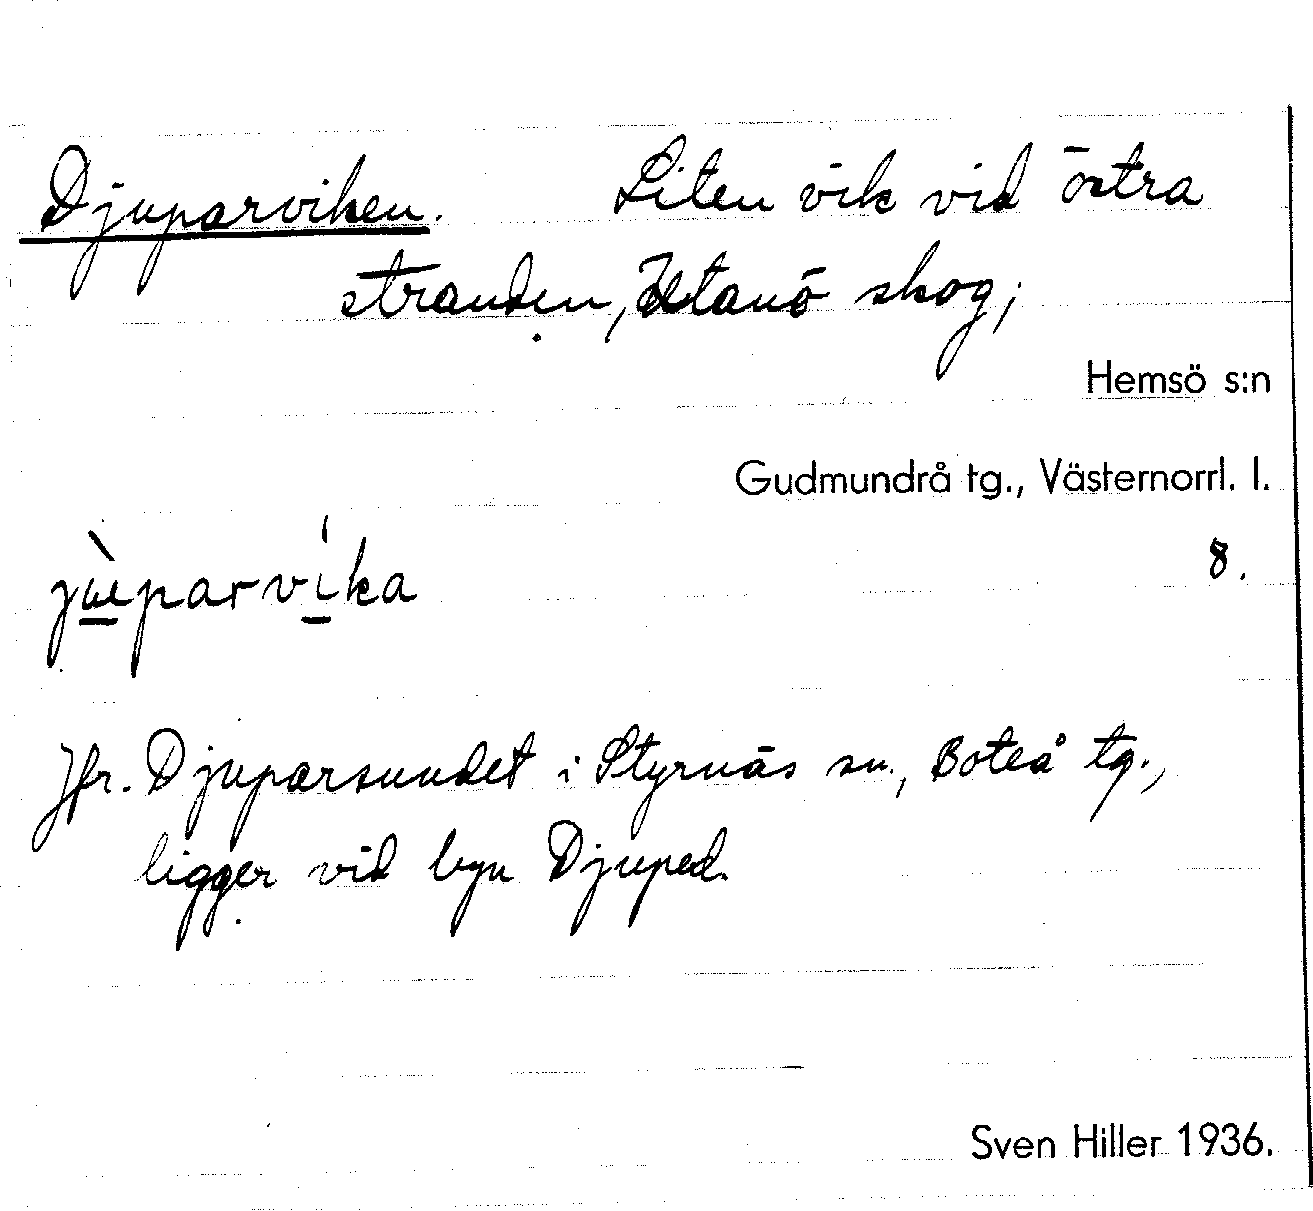 Djuparviken. Liten vik vid östra
stranden, Utanö skog;
Hemsö s:n
Gudmundrå tg., Västernorrl. l.
8.
jùparvíka
Jfr. Djuparsundet i Styrnäs sn., Boteå tg.,
ligger vid byn Djuped.
Sven Hiller 1936.